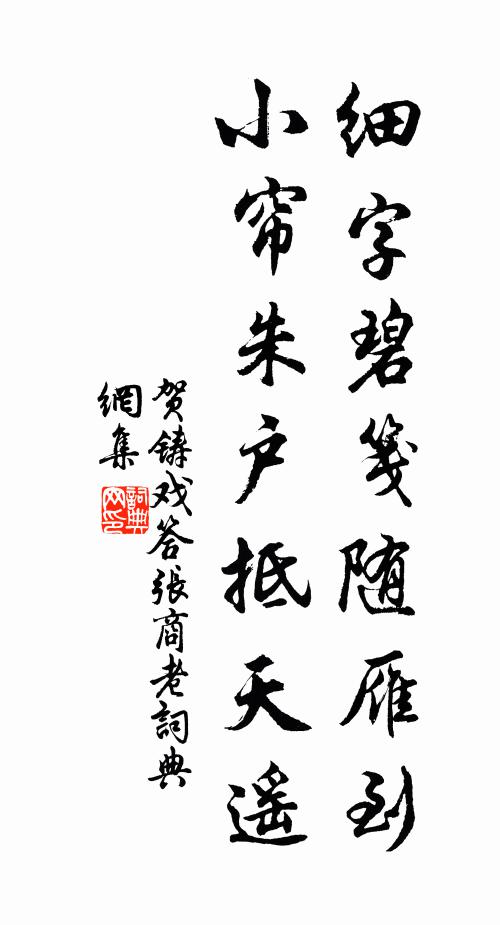 细字碧笺随雁到
小帘朱户抵天遥
贺铸戏答张商老詞典
網集
詞典
网印